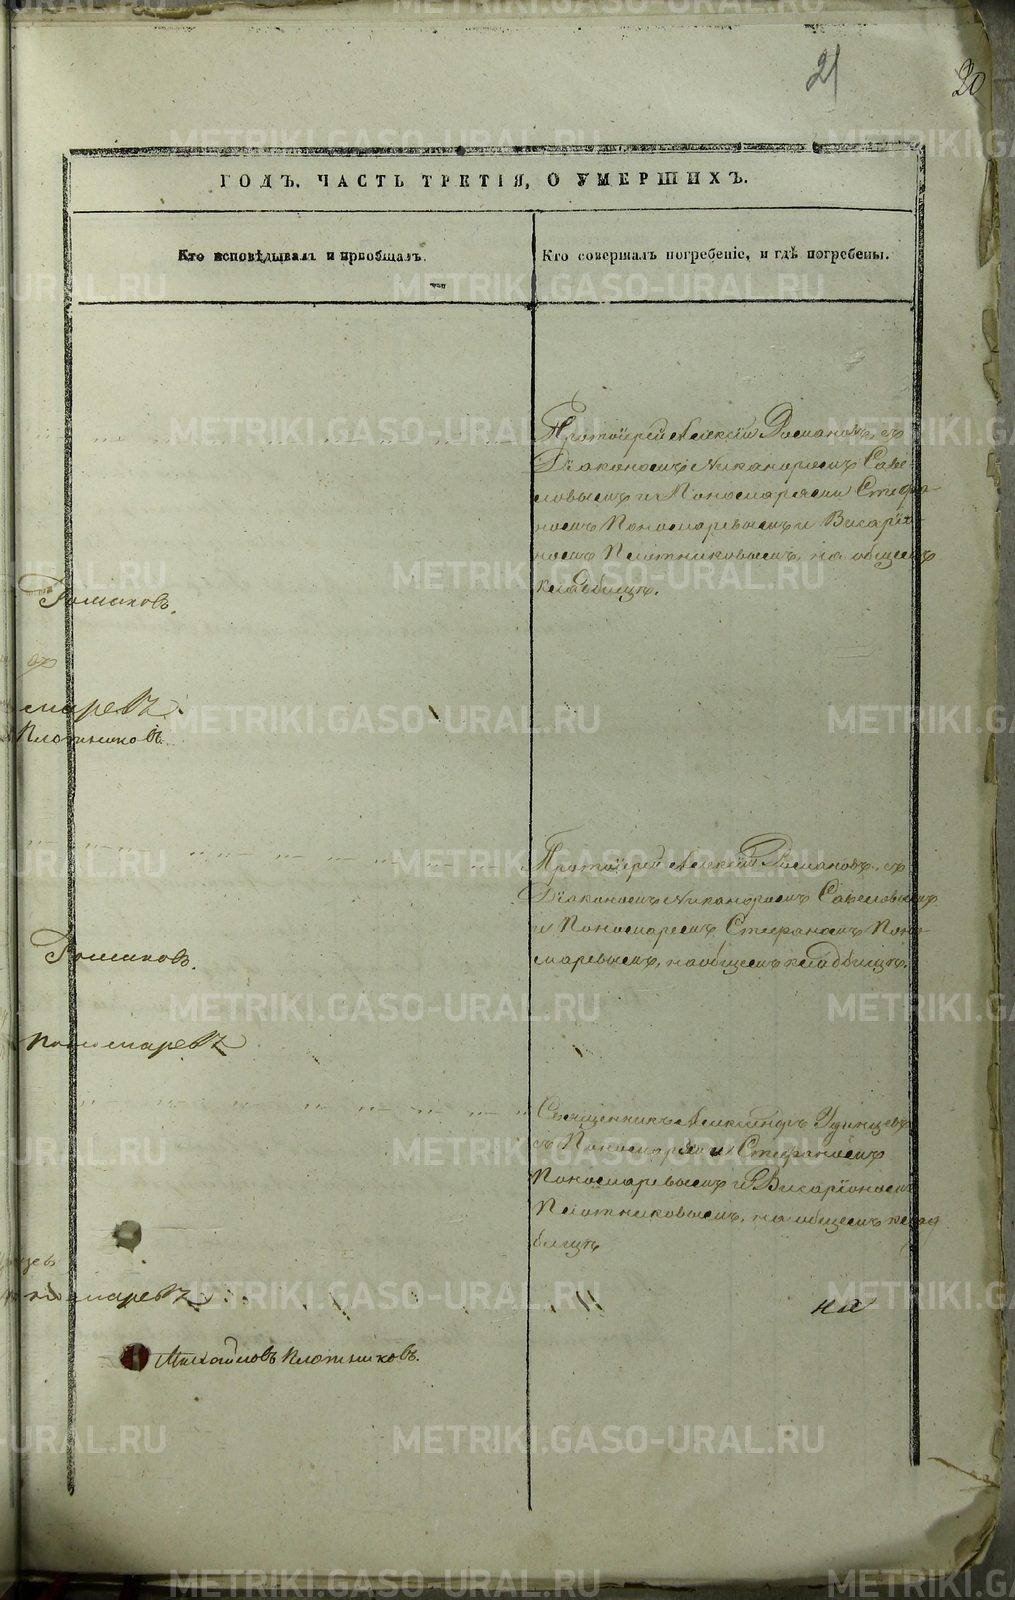 21
20
ГОДЪ. ЧАСТЬ ТРЕТІЯ, О УМЕРШИХЪ.
Кто исповѣдывалъ и пріобщалъ.
Кто совершалъ погребеніе, и гдѣ погребены.
Протоіерей Алексій Романовъ, съ
Діакономъ Никаноромъ Савѣ-
ловымъ и Пономарями Стефа-
номъ Пономаревымъ и Висаріо-
номъ Плотниковымъ, на общемъ
кладбищѣ.
Романовъ.
маревъ.
Плотниковъ.
Протоіерей Алексій Романовъ, съ
Діакономъ Никаноромъ Савѣловымъ
и Пономаремъ Стефаномъ Поно-
маревымъ, на общемъ кладбищѣ.
Романовъ.
Пономаревъ
Священникъ Александръ Удинцевъ
съ Пономарями Стефаномъ
Пономаревымъ и Висаріономъ
Плотниковымъ, на общемъ клад
бищѣ
номаревъ
на
Михайловъ Плотниковъ.
METRIKI.GASO-URAL.RU